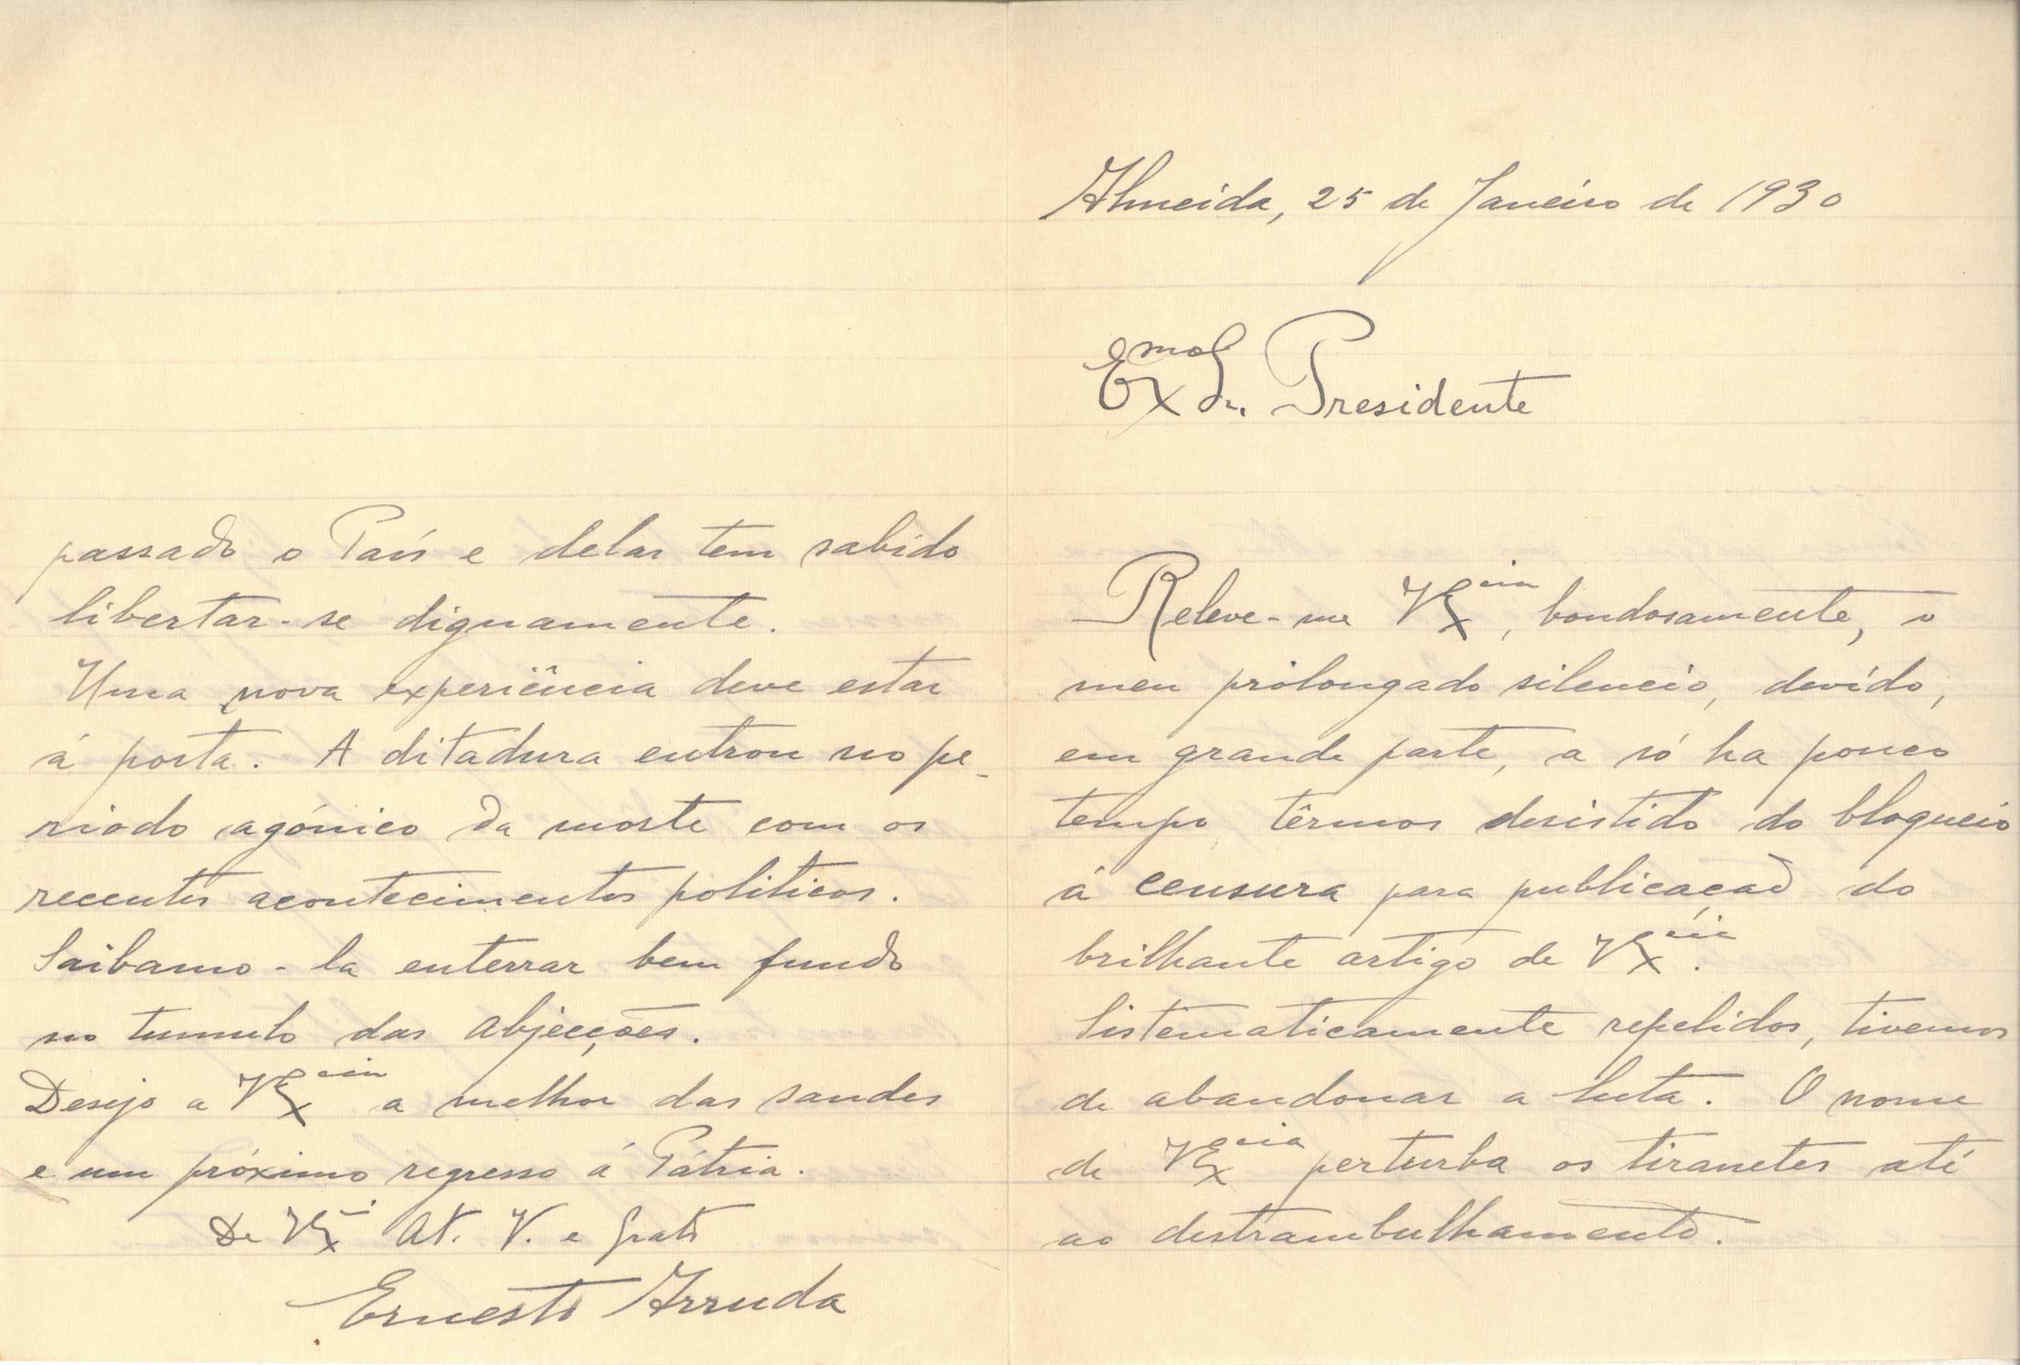 Almeida, 25 de Janeiro de 1930
Exmo Sr. Presidente
Releve-me V Excia, bondosamente, o
meu prolongado silencio, devido,
em grande parte, a só ha pouco
tempo têrmos desistido do bloqueio
á censura para publicação do
brilhante artigo de V Excia.
Sistematicamente repelidos, tivemos
de abandonar a luta. O nome
de V Excia perturba os tiranetes até
ao destrambulhamento.
passado o País e delas tem sabido
libertar-se dignamente.
Uma nova experiência deve estar
á porta. A ditadura entrou no pe-
riodo agónico da morte com os
recentes acontecimentos politicos.
Saibamo-la enterrar bem fundo
no tumulo das abjecções.
Desejo a V Excia a melhor das saudes
e um próximo regresso á Pátria.
De V Ex At. V. e Grato
Ernesto Arruda